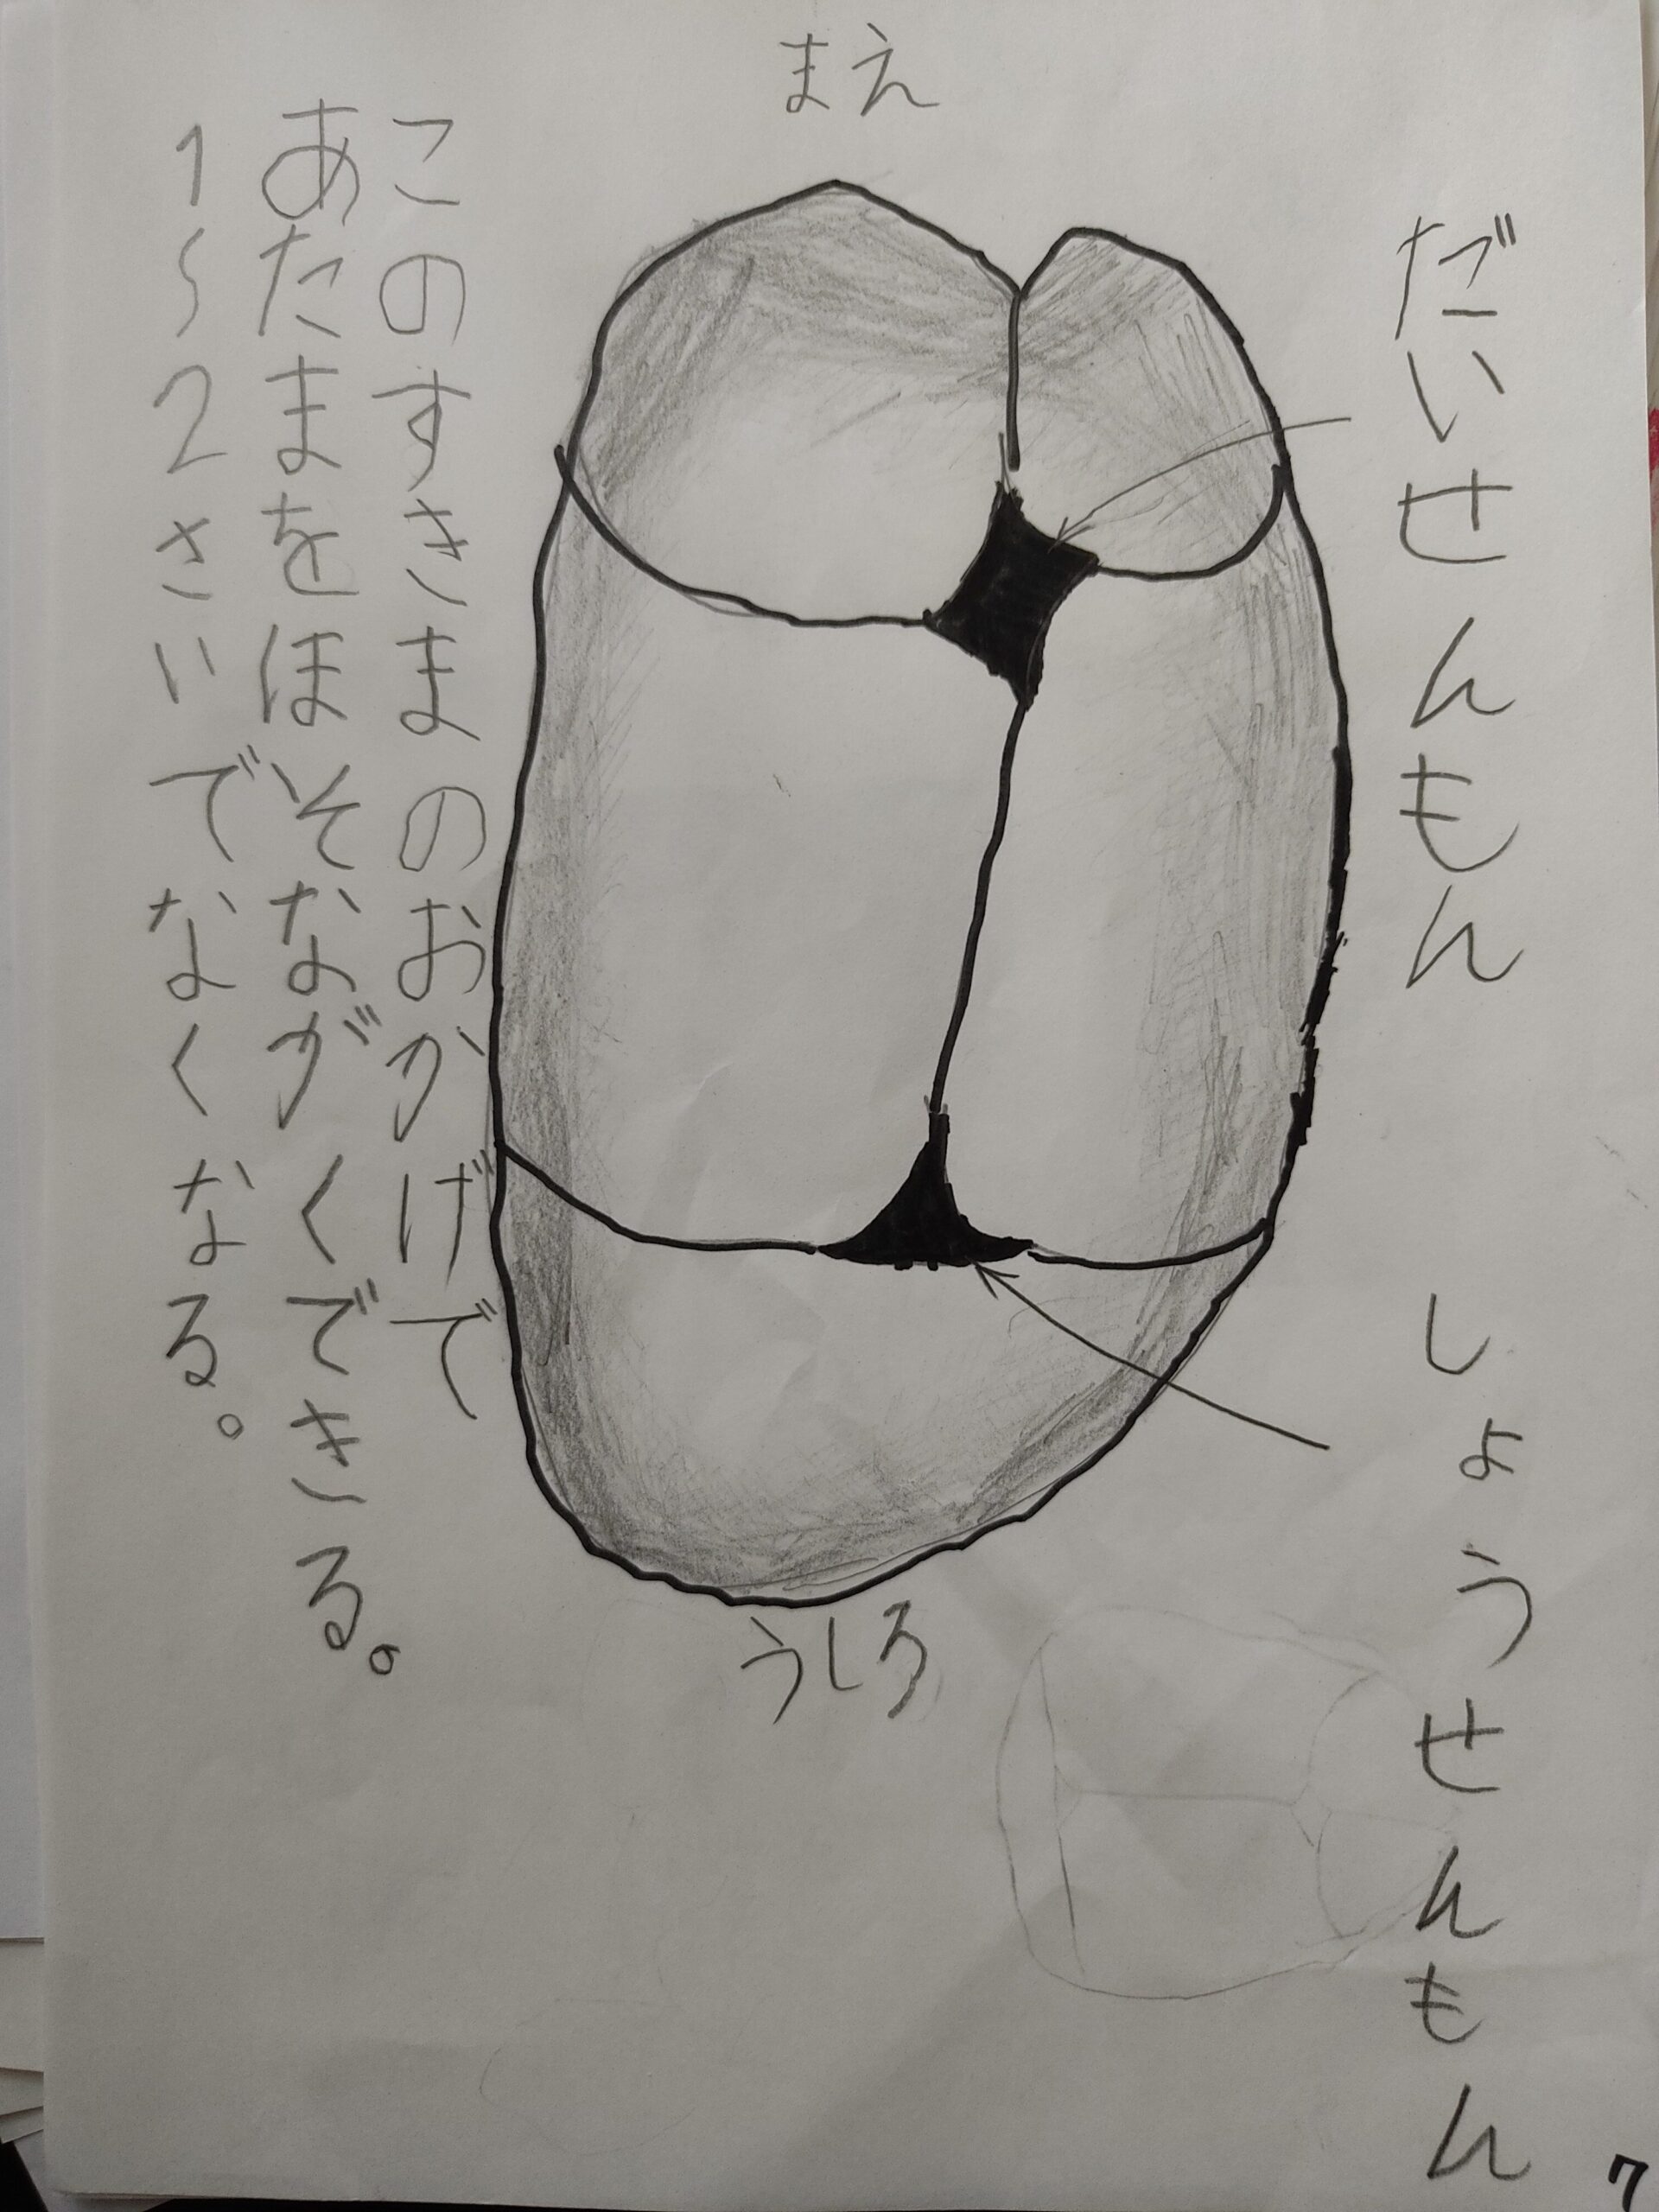 まえ
だいせんもん
しょうせんもん
このすきまのおかげで
あたまをほそながくできる。
1〜2さいでなくなる。
うしろ
7